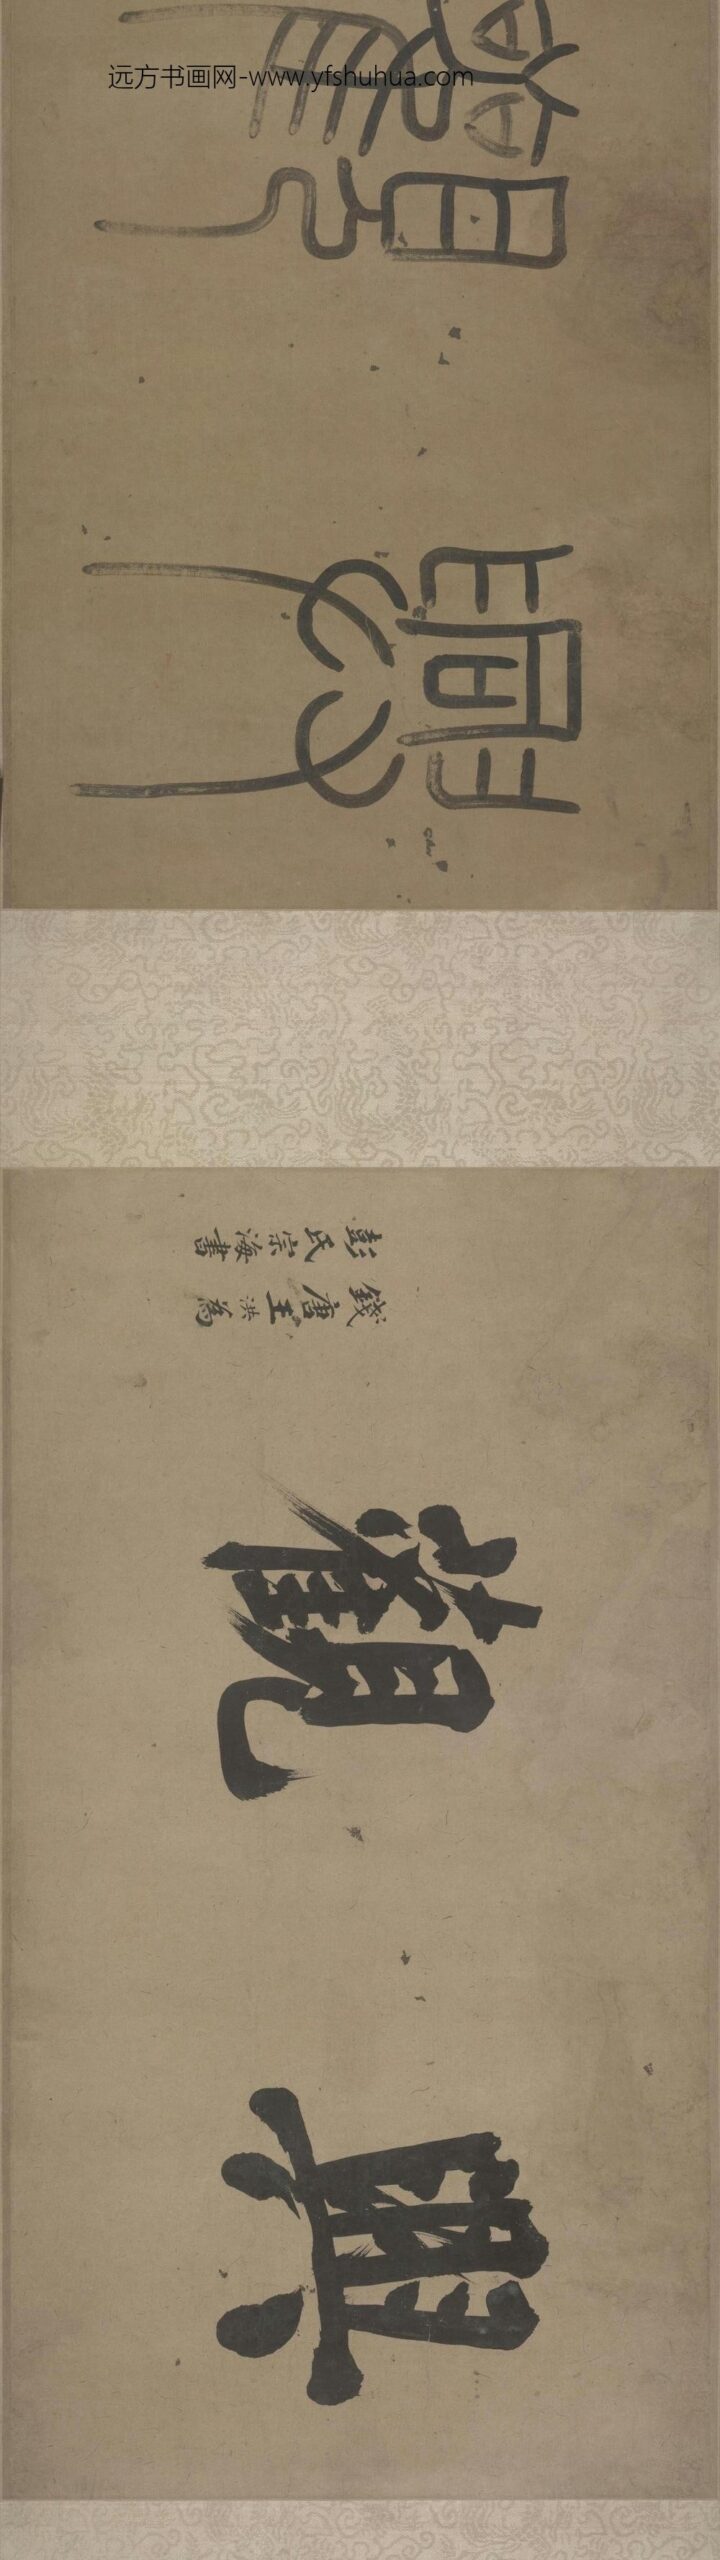 远方书画网-www.yfshuhua.com
興觀
錢唐王洪為
彭氏宗海書
興觀